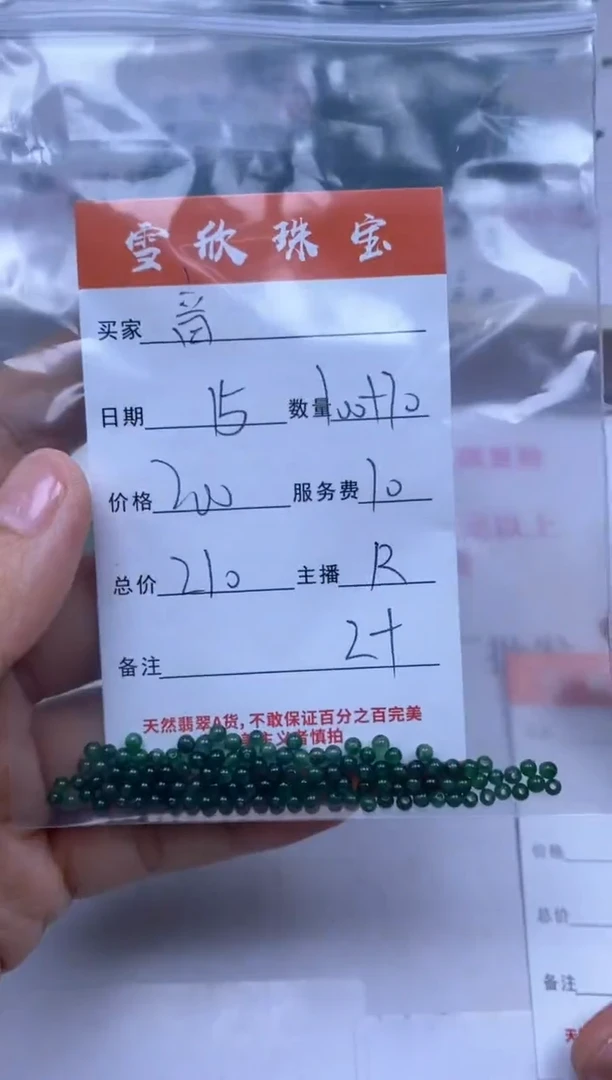 雪欣珠宝
买家 音
日期 15 数量 100+70
价格 200 服务费 10
总价 210 主播 R
备注 2十
天然翡翠A货,不敢保证百分之百完美
主义者慎拍
价格
总价
备注
天